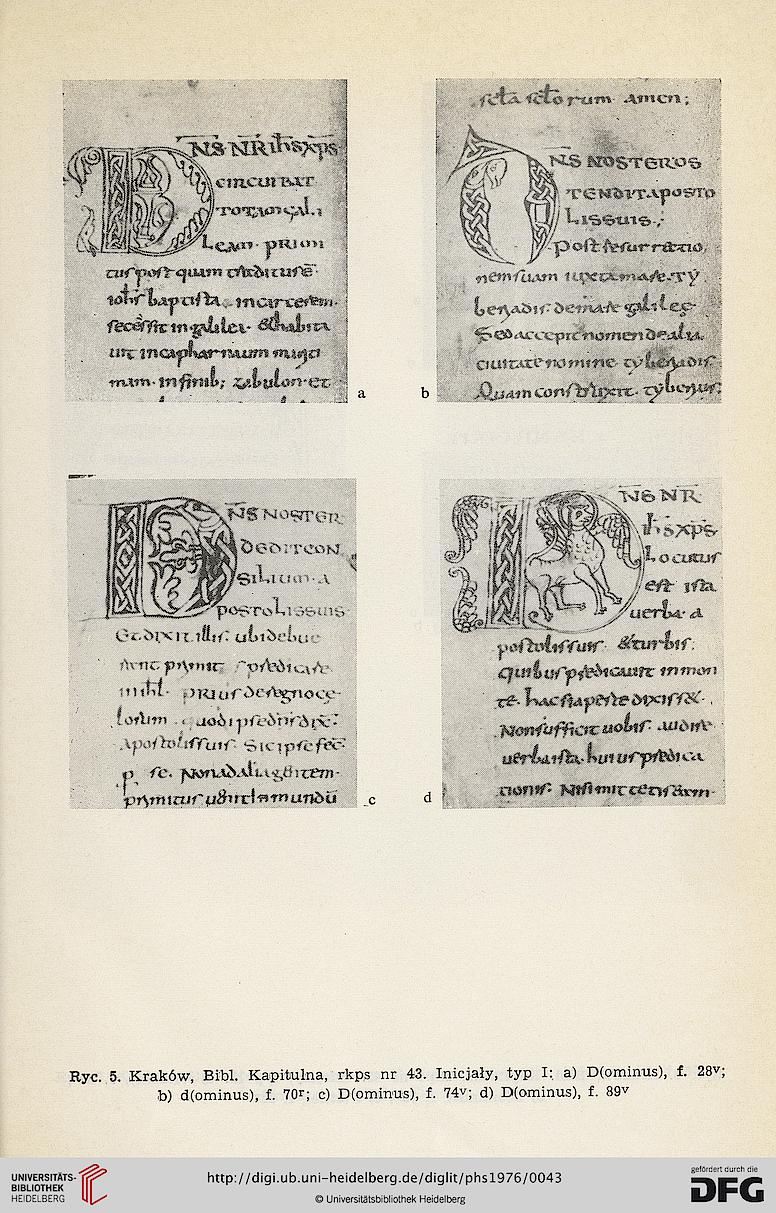 sc̄ła sc̄lorum. amen;
N̄S N̄R ih̄s xp̄s
circuibat
totam gali
Leam. primi
tus post quam
ioh̄s baptista in carcerem.
in galilea. & habita
uit in capharnaum mariti
mam. in finib; zabulon. et
a
NS NOSTEROS
TENDIT APOSTO
Lissuis.;
post resurrectio
nem suam iuxta mare. Ty
beriadis. de mare galileę.
Sed accepit nomen de alia
ciuitate nomine tyberiadis.
Quam construxit. tyberius;
b
N̄S NOSTER
DEDIT CON
SILIUM. A
POSTOLISSUIS
Et dixit illis. ubi debue
primit
mihi. prius de regno cę
lorum
apostolis suis. Sic ipse fec̄
se. Non ad alia g
primitus mundū
c
N̄S N̄R
ih̄s xp̄s
Locutus
est ista
uerba. a
postolis suis. & turbis.
quibus predicauit in mon
te. hac
Non sufficit uobis. audire
uerba ista. huius predica
tionis. Nisi mittetis
d
Ryc. 5. Kraków, Bibl. Kapitulna, rkps nr 43. Inicjały, typ I: a) D(ominus), f. 28v;
b) d(ominus), f. 70r; c) D(ominus), f. 74v; d) D(ominus), f. 89v
UNIVERSITÄTS-
BIBLIOTHEK
HEIDELBERG
http://digi.ub.uni-heidelberg.de/diglit/phs1976/0043
© Universitätsbibliothek Heidelberg
gefördert durch die
DFG